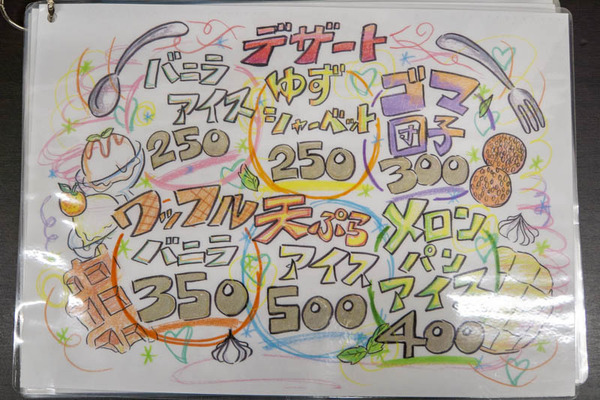 デザート
バニラ
アイス
250
ゆず
シャーベット
250
ゴマ
団子
300
ワッフル
バニラ
350
天ぷら
アイス
500
メロン
パン
アイス
400